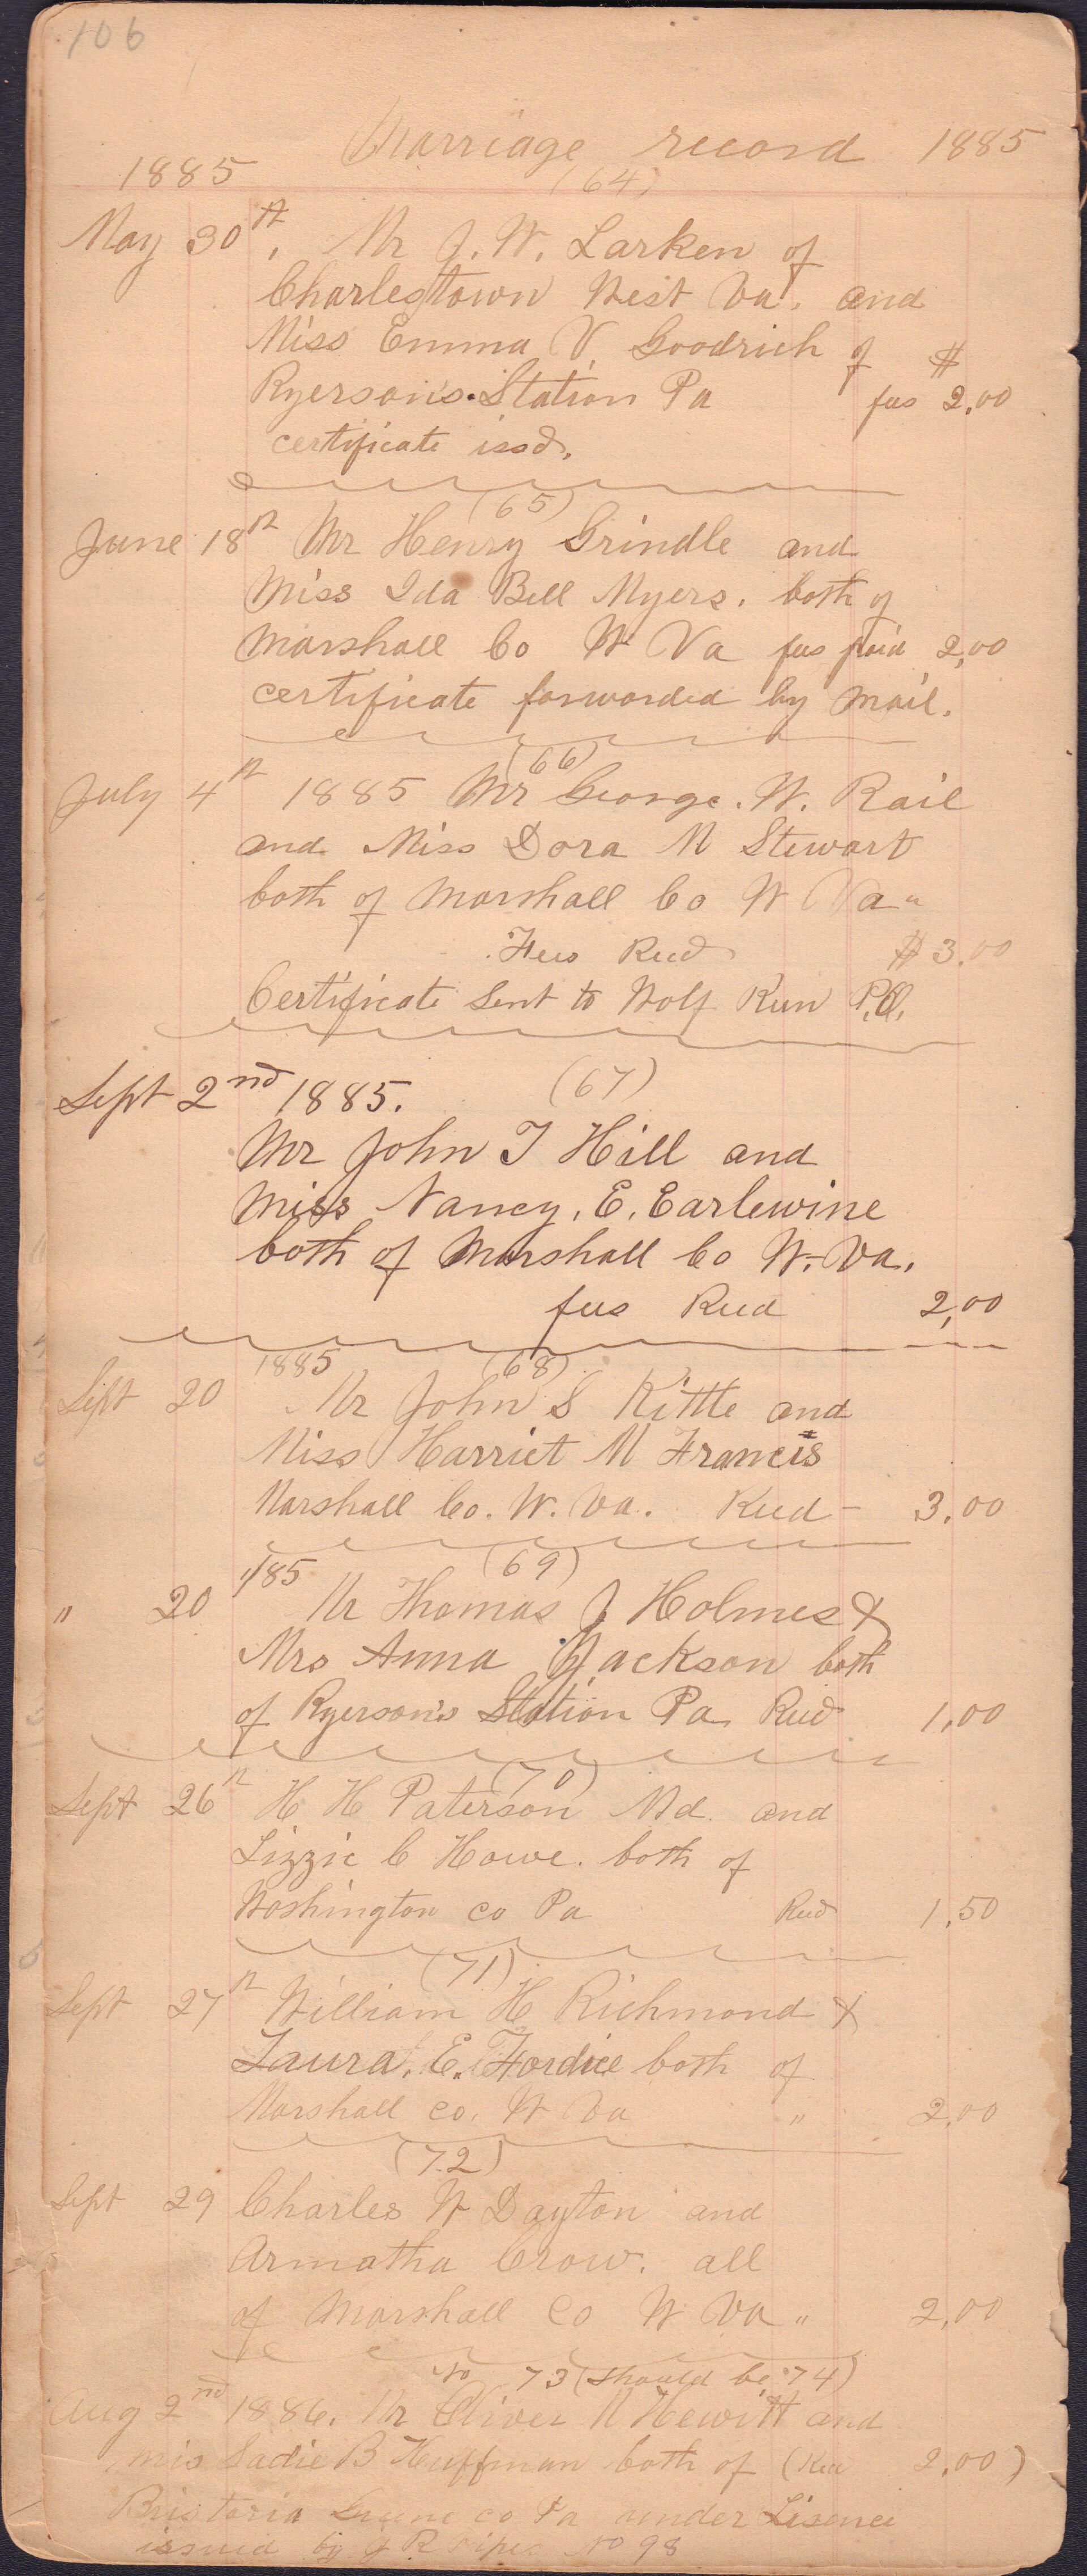 106
Marriage record 1885
1885
(64)
May 30th, Mr J. W. Larken of
Charlestown West Va. and
Miss Emma V. Goodrich of $
Ryerson's Station Pa fees 2,00
certificate issd.
(65)
June 18th Mr Henry Grindle and
Miss Ida Bell Myers. both of
Marshall Co W Va fees paid 2,00
certificate forwarded by mail.
(66)
July 4th 1885 Mr George. W. Rail
and Miss Dora M Stewart
both of Marshall Co W Va "
Fees Recd $3.00
Certificate Sent to Wolf Run P.O.
Sept 2nd 1885. (67)
Mr John T Hill and
Miss Nancy. E. Earlewine
both of Marshall Co W. Va.
fees Recd 2,00
1885 (68)
Sept 20 Mr John S Kittle and
Miss Harriet M Francis
Marshall Co. W. Va. Recd - 3.00
1/85 (69)
" 20 Mr Thomas J Holmes &
Mrs Anna Jackson both
of Ryerson's Station Pa Recd 1,00
(70)
Sept 26th H H Paterson Md. and
Lizzie C Howe. both of
Washington co Pa Recd 1,50
(71)
Sept 27th William H Richmond &
Laura. E. Fordice both of
Marshall co. W Va " 2,00
(72)
Sept 29 Charles W Dayton and
Armatha Crow. all
of Marshall Co W Va " 2,00
No 73 (should be 74)
Aug 2nd 1886. Mr Oliver N Hewitt and
mis Sadie B Huffman both of (Rec 2,00)
Bristoria Greene co Pa under Lisence
issued by J R Pipes No 98